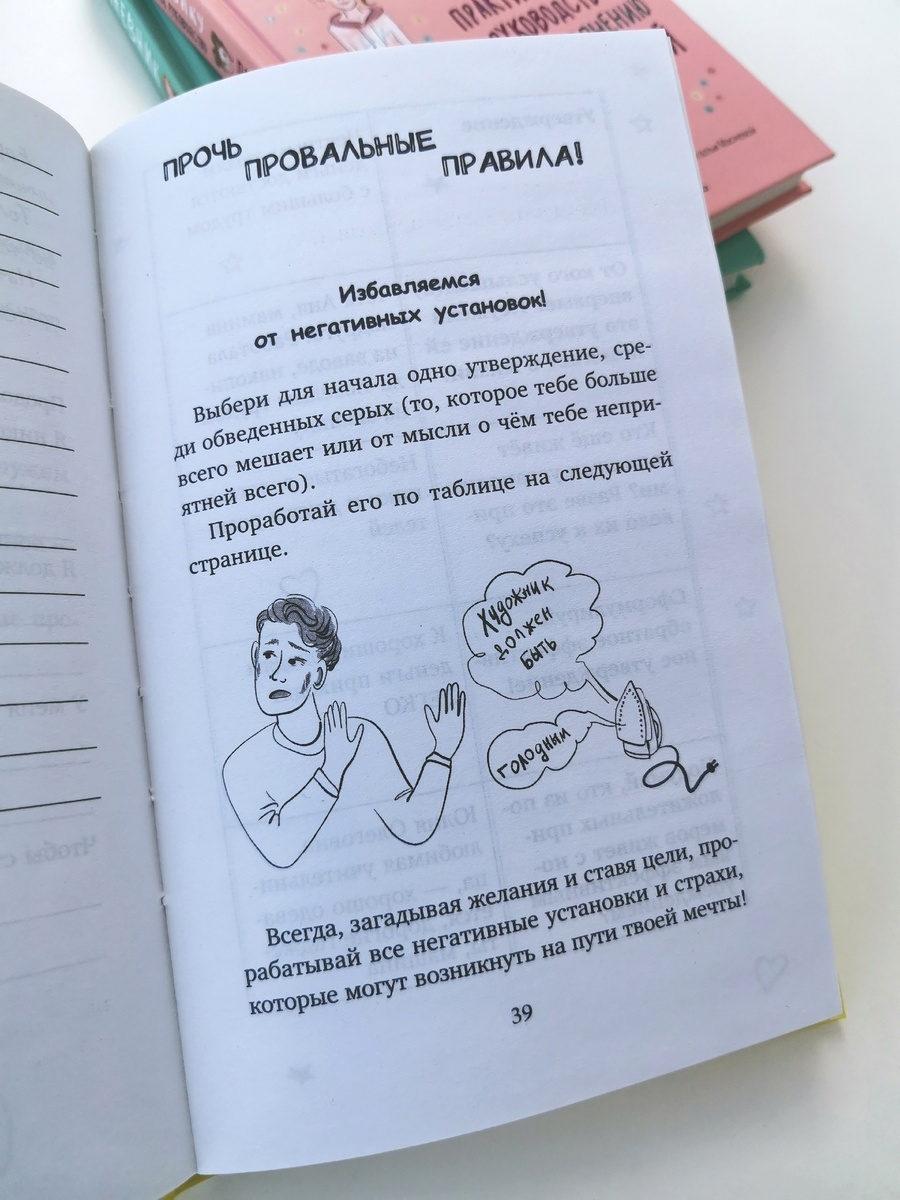 ПРОЧЬ ПРОВАЛЬНЫЕ ПРАВИЛА!
Избавляемся
от негативных установок!
Выбери для начала одно утверждение, сре-
ди обведенных серых (то, которое тебе больше
всего мешает или от мысли о чём тебе непри-
ятней всего).
Проработай его по таблице на следующей
странице.
Художник
должен
быть
голодным
Всегда, загадывая желания и ставя цели, про-
рабатывай все негативные установки и страхи,
которые могут возникнуть на пути твоей мечты!
39
Чтобы с